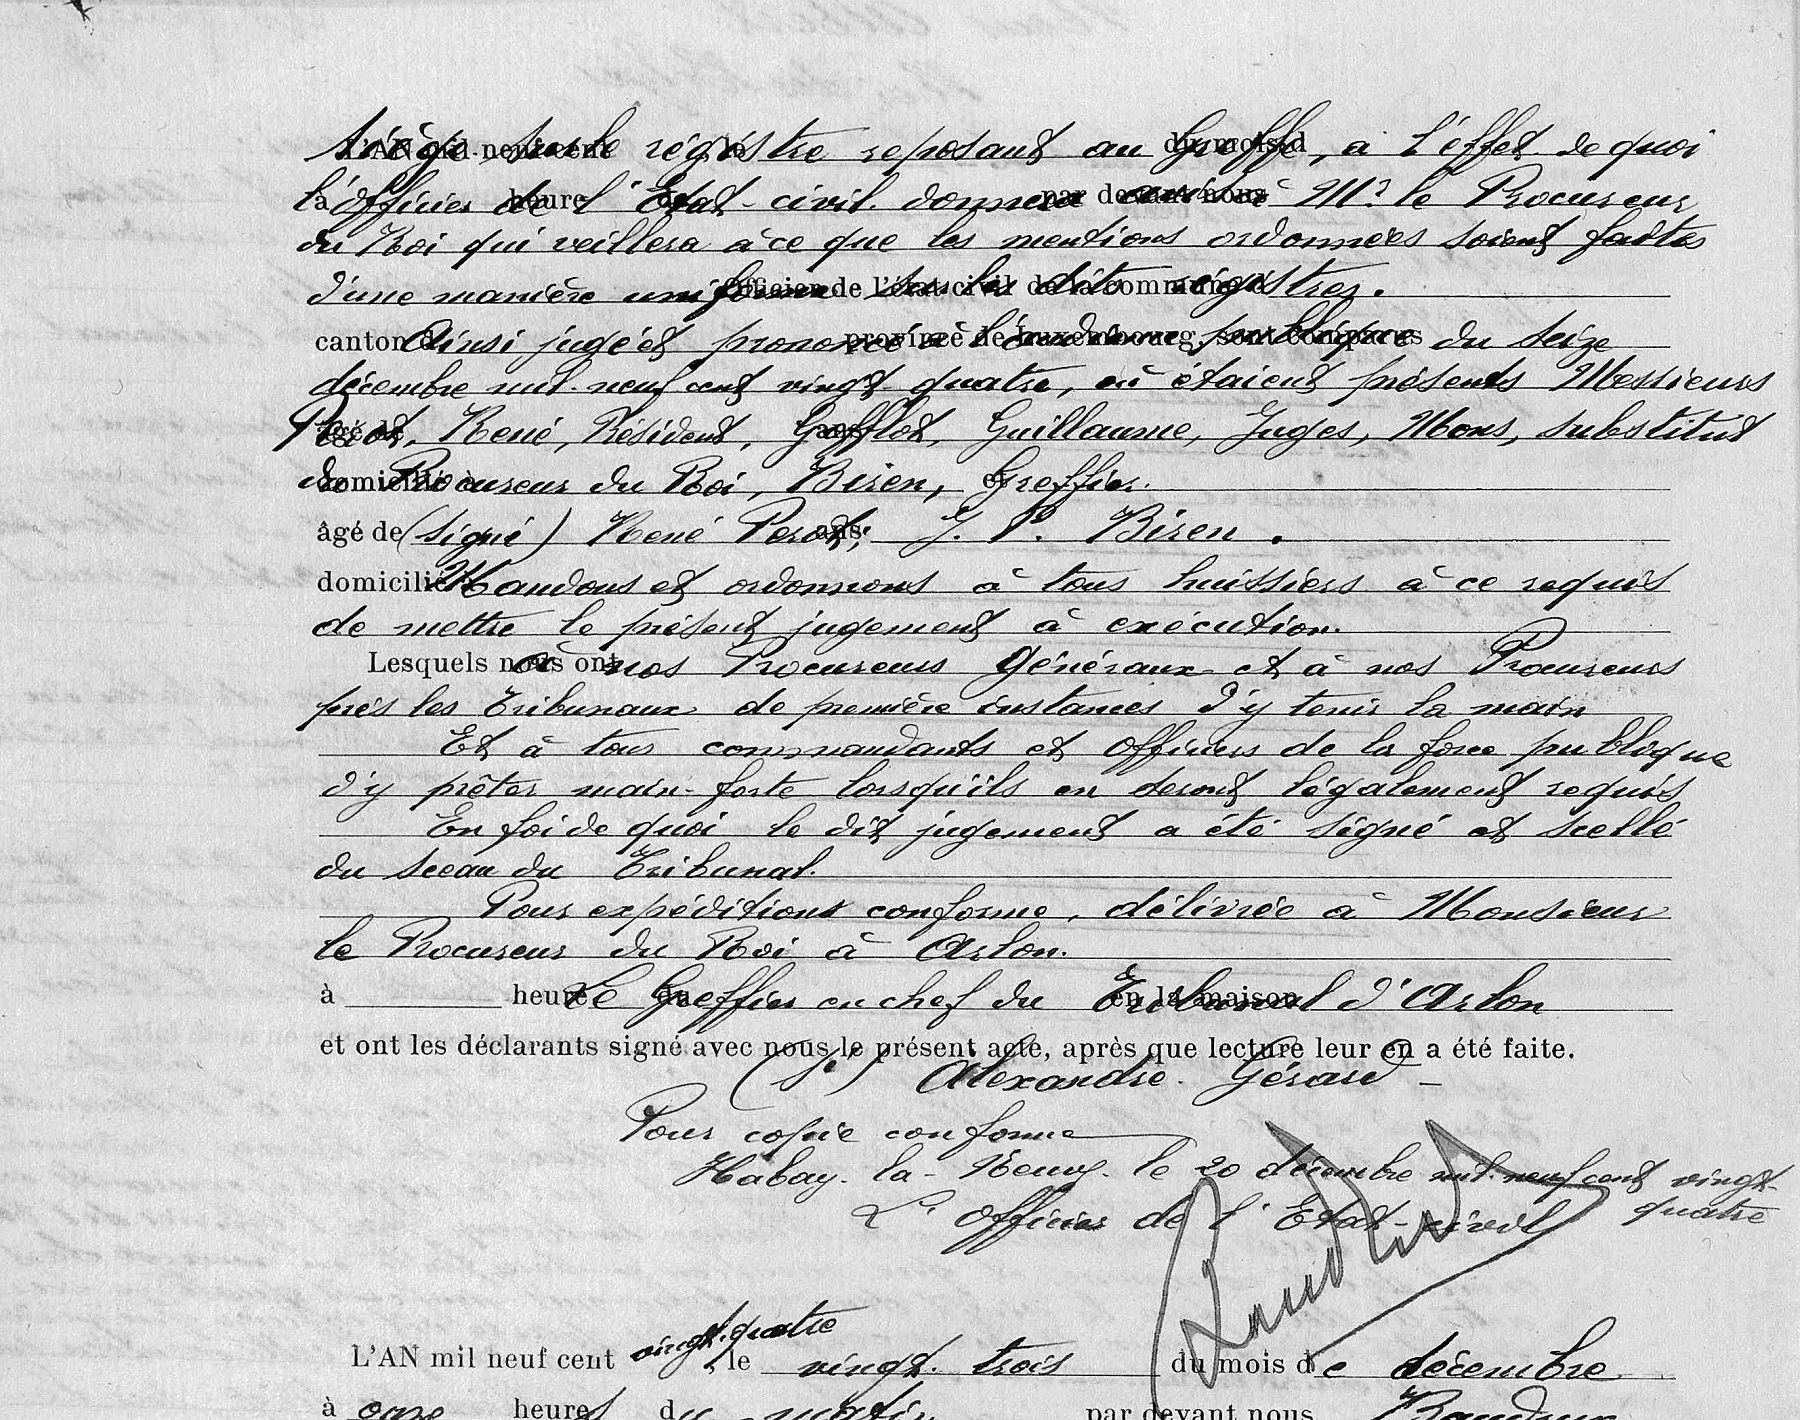 sur le régistre reposant au Greffe, à l'éffet de quoi
l'officier de l'Etat-civil donnera à Mr le Procureur
du Roi qui veillera à ce que les mentions ordonnées soient faites
d'une manière uniforme sur les dits régistres.
Ainsi jugé et prononcé à l'audience publique du seize
décembre mil neuf cent vingt-quatre, où étaient présents Messieurs
Perot, René, Président, Gofflot, Guillaume, Juges, Mons, substitut
du Procureur du Roi, Biren, Greffier.
âgé de (signé) René Perot; J. P. Biren.
domicilié à Mandons et ordonnons à tous huissiers à ce requis
de mettre le présent jugement à exécution.
Lesquels nous ont à nos Procureurs Généraux et à nos Procureurs
près les Tribunaux de première instances d'y tenir la main
Et à tous commandants et officiers de la force publique
d'y prêter main-forte lorsqu'ils en seront légalement requis
En foi de quoi le dit jugement a été signé et scellé
du sceau du Tribunal.
Pour expédition conforme, délivrée à Monsieur
le Procureur du Roi à Arlon.
à heure Le Greffier en chef du Tribunal d'Arlon en la maison
et ont les déclarants signé avec nous le présent acte, après que lecture leur en a été faite.
(s.) Alexandre. Gérard -
Pour copie conforme
Habay-la-Neuve le 20 décembre mil neuf cent vingt-
quatre
L'officier de l'Etat-civil
L'AN mil neuf cent vingt-quatre, le vingt-trois du mois de décembre
à onze heures du matin par devant nous